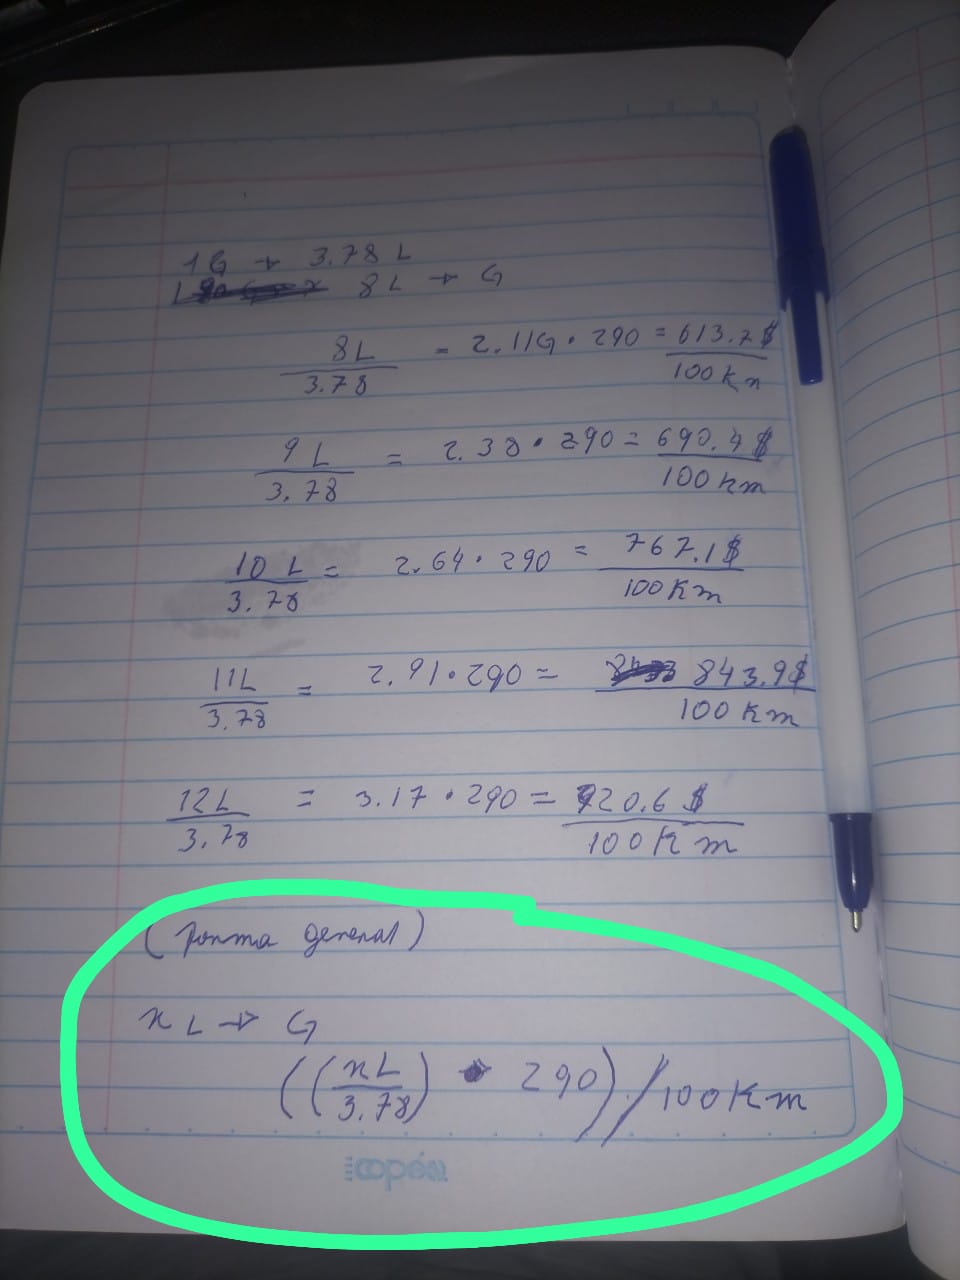 1G → 3.78 L
8L → G
8L / 3.78 = 2.11G · 290 = 613.7$ / 100Km
9L / 3.78 = 2.38 · 290 = 690.4$ / 100Km
10 L / 3.78 = 2.64 · 290 = 767.1$ / 100Km
11L / 3.78 = 2.91 · 290 = 843.9$ / 100Km
12L / 3.78 = 3.17 · 290 = 920.6$ / 100Km
(forma general)
x L → G
((xL / 3.78) · 290) / 100Km
copán